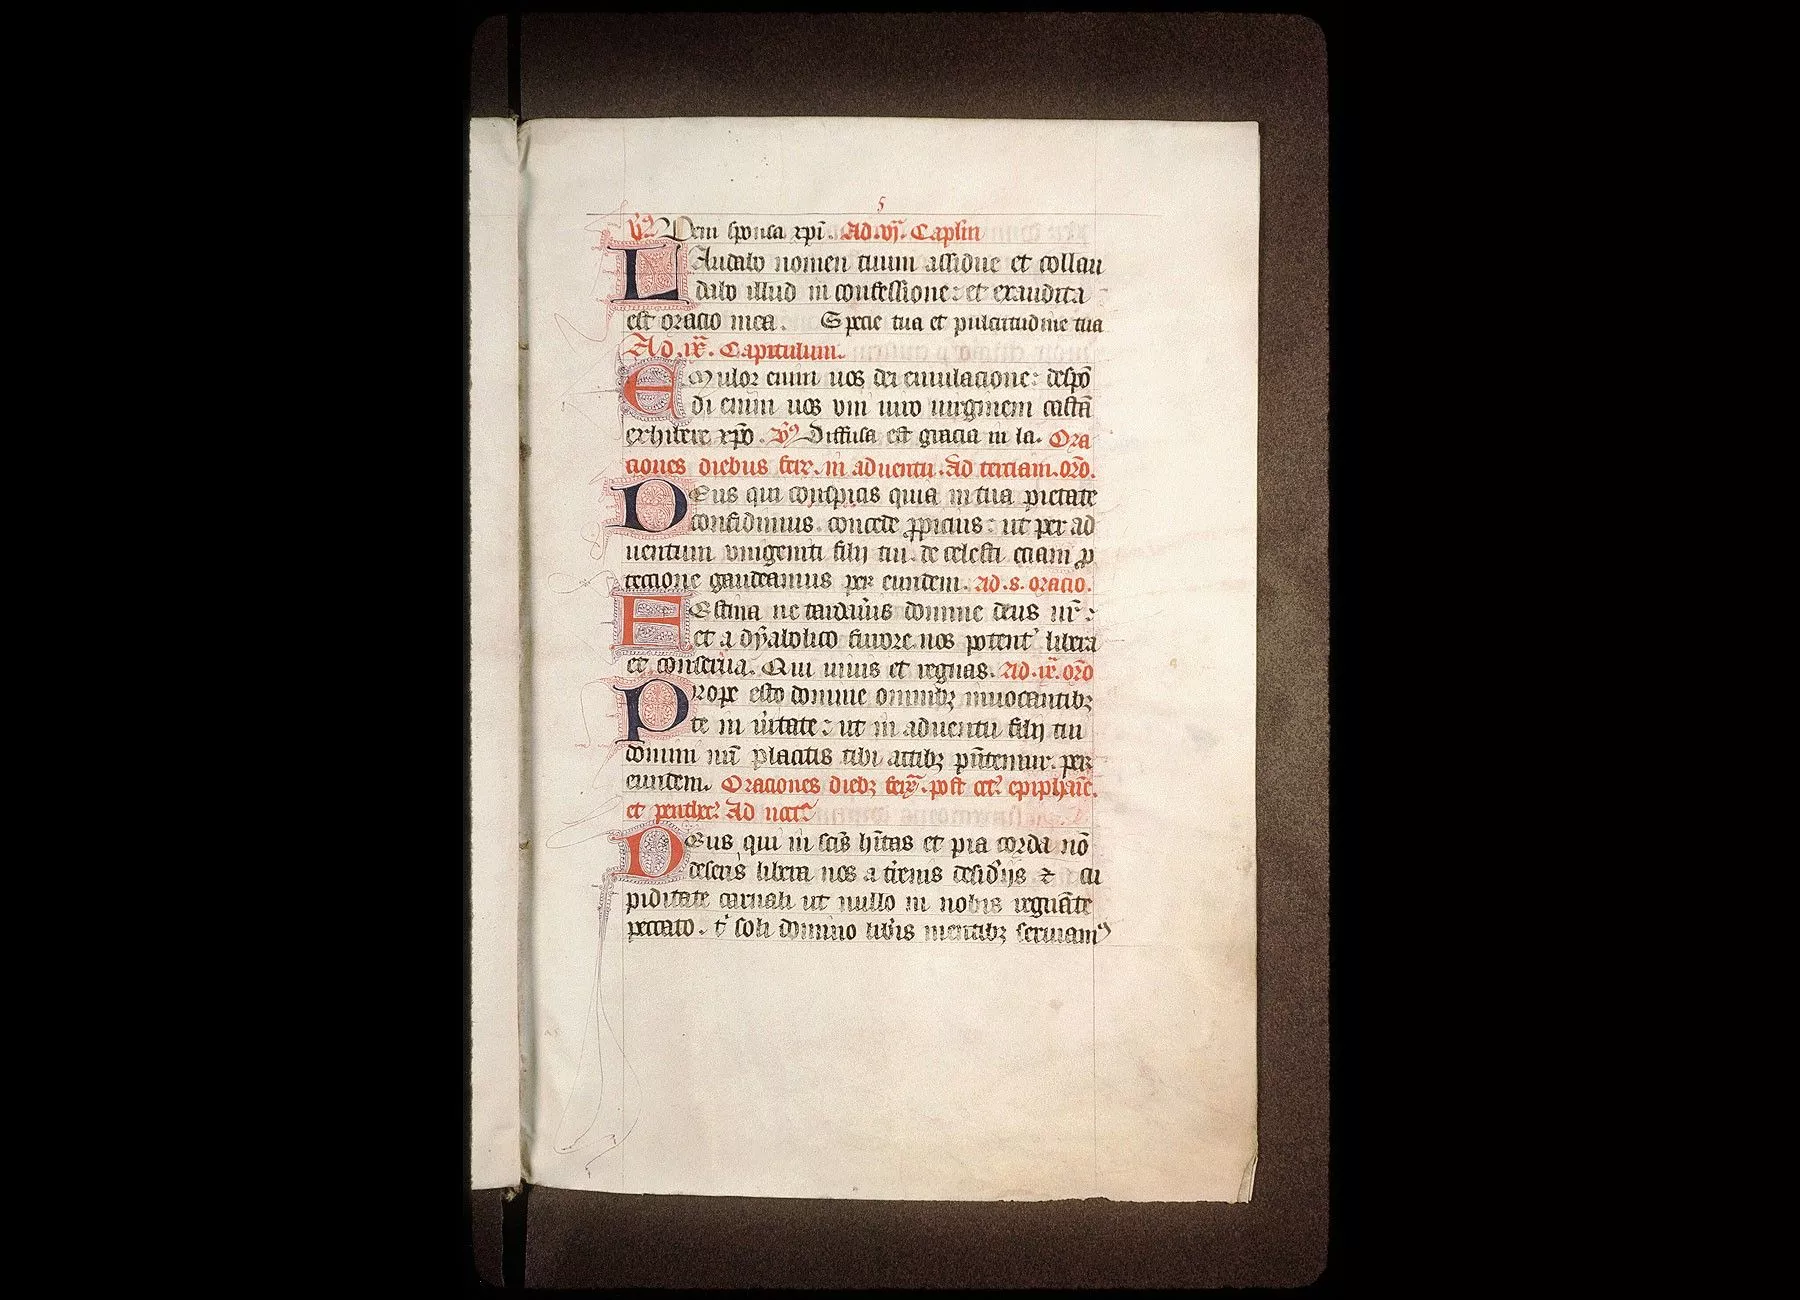 5
Vꝰ Veni sponsa xp̄i. Ad .vj. Caplm
LAudabo nomen tuum assidue et collau
dabo illud in confessione: et exaudita
est oracio mea. Specie tua et pulcritudine tua
Ad .ix. Capitulum.
EMulor enim uos dei emulacione: despō
di enim uos vni uiro uirginem castā
exhibere xp̄o. Vꝰ Diffusa est gracia in la. Ora
ciones diebus fer̄. in aduentu. Ad terciam. or̄o.
DEus qui conspicis quia in tua pietate
confidimus. concede ꝓpicius: ut per ad
uentum vnigeniti filij tui. de celesti eciam ꝓ
tectione gaudeamus per eundem. Ad .s. oracio.
FEstina ne tardau̾is domine deus nr̄:
et a dyabolico furore nos potent̾ libera
et conserua. Qui uiuis et regnas. Ad .ix. or̄o
PRope esto domine omnibꝫ inuocantibꝫ
te in u̾itate: ut in aduentu filij tui
domini nr̄i placitis tibi actibꝫ pn̄temur. per
eundem. Oraciones diebꝫ fer̄. post oct̾. epiphan̄.
et penthec̾. Ad noct̾
DEus qui in sc̄is hītas et pia corda nō
deseris libera nos a t̾renis desid̾ijs ⁊ cu
piditate carnali ut nullo in nobis regnāte
peccato. t̾ soli domino lib̾is mentibꝫ seruiamꝰ